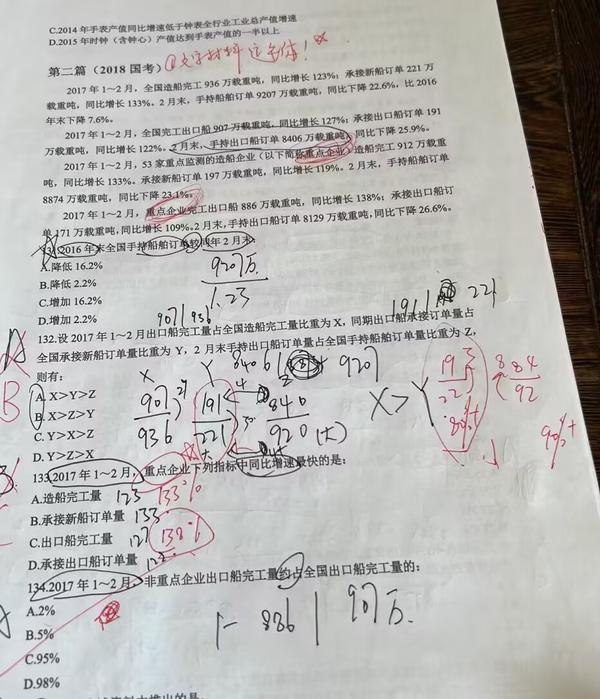 C.2014年手表产值同比增速低于钟表全行业工业总产值增速
D.2015年时钟（含钟心）产值达到手表产值的一半以上
第二篇（2018国考）
2017年1～2月，全国造船完工936万载重吨，同比增长123%；承接新船订单221万
载重吨，同比增长133%。2月末，手持船舶订单9207万载重吨，同比下降22.6%，比2016
年末下降7.6%。
2017年1～2月，全国完工出口船907万载重吨，同比增长127%；承接出口船订单191
万载重吨，同比增长122%。2月末，手持出口船订单8406万载重吨，同比下降25.9%。
2017年1～2月，53家重点监测的造船企业（以下简称重点企业）造船完工912万载重
吨，同比增长133%。承接新船订单197万载重吨，同比增长119%。2月末，手持船舶订单
8874万载重吨，同比下降23.1%。
2017年1～2月，重点企业完工出口船886万载重吨，同比增长138%；承接出口船订
单171万载重吨，同比增长109%。2月末，手持出口船订单8129万载重吨，同比下降26.6%。
2016年末全国手持船舶订单较 年2月末：
A.降低16.2%
B.降低2.2%
C.增加16.2%
D.增加2.2%
907万
1.23
907 936
191 221
132.设2017年1～2月出口船完工量占全国造船完工量比重为X，同期出口船承接订单量占
全国承接新船订单量比重为Y，2月末手持出口船订单量占全国手持船舶订单量比重为Z，
则有：
A.X>Y>Z
B.X>Z>Y
C.Y>X>Z
D.Y>Z>X
B
X Y Z
907 191 840
936 221 920 (大)
920
X>Y
84
92
90%+
133.2017年1～2月，重点企业下列指标中同比增速最快的是：
A.造船完工量 123 133%
B.承接新船订单量 133
C.出口船完工量 127 138%
D.承接出口船订单量 122
134.2017年1～2月，非重点企业出口船完工量约占全国出口船完工量的：
A.2%
B.5%
C.95%
D.98%
1- 886 907万